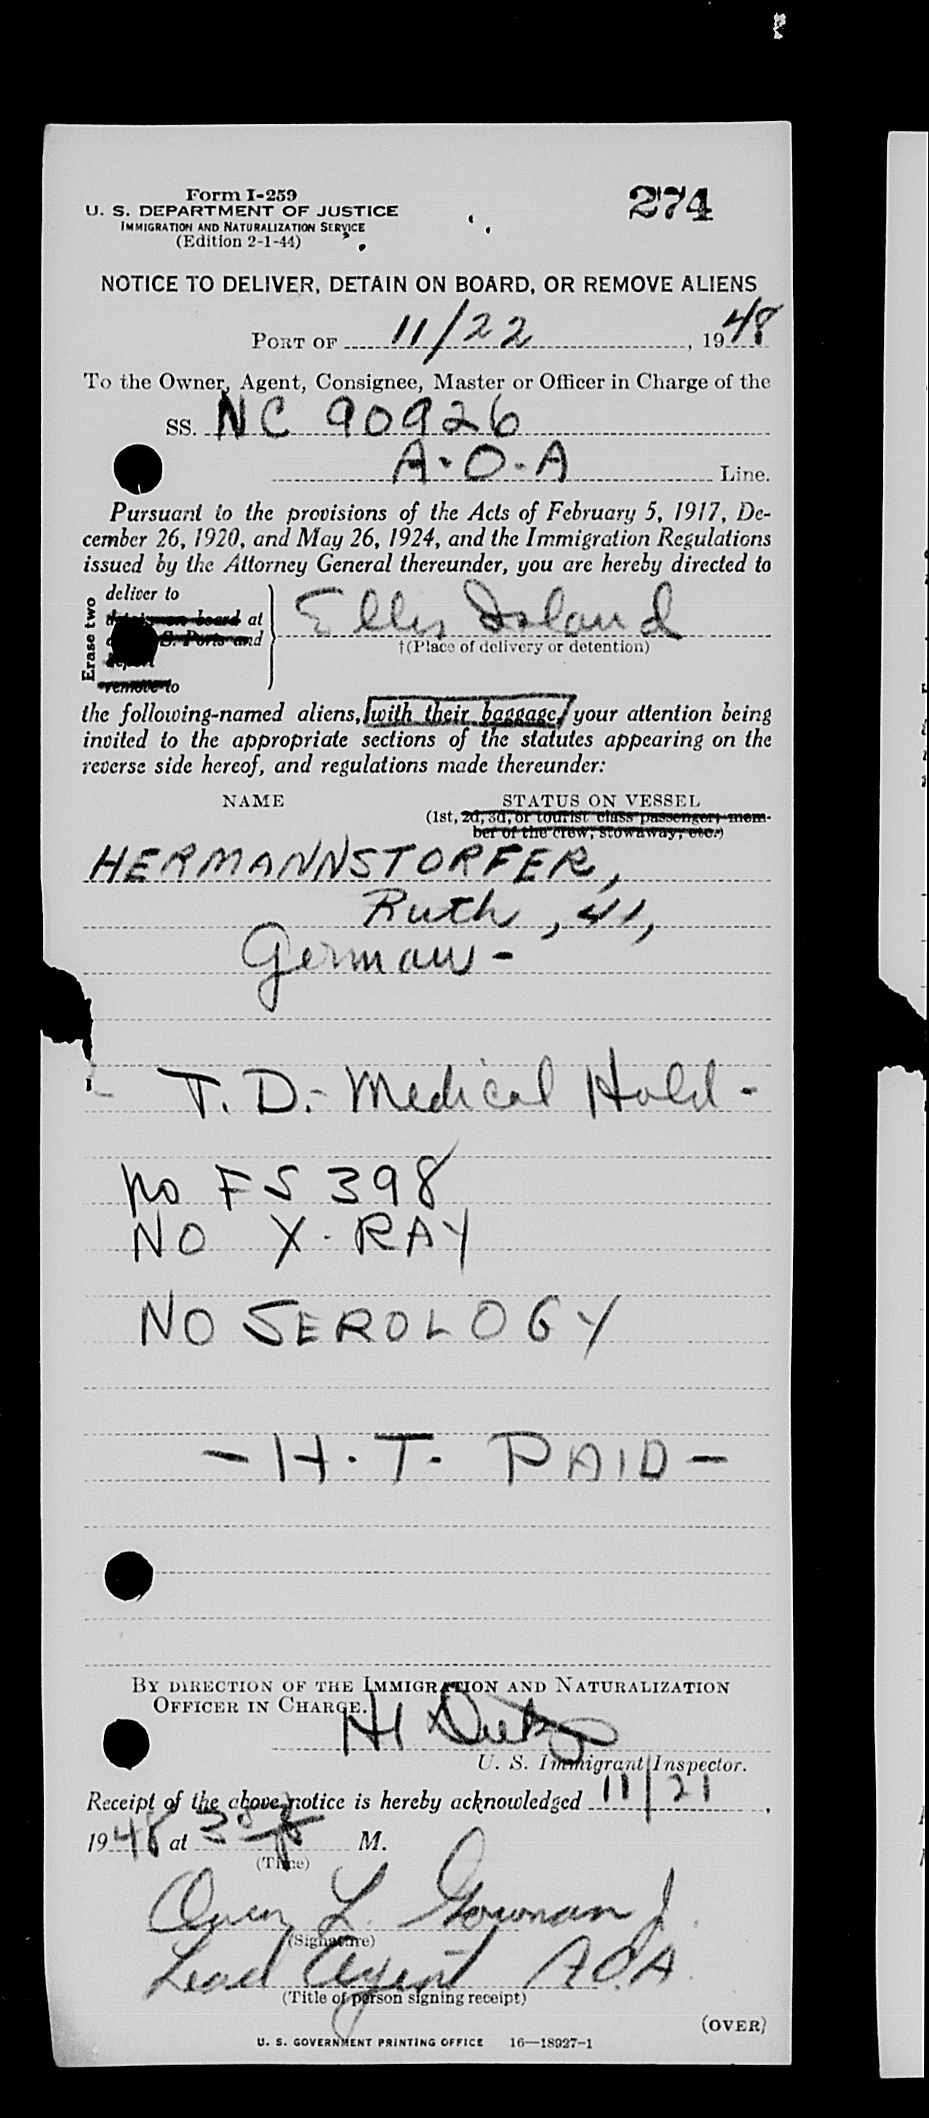 Form I-259
274
U. S. DEPARTMENT OF JUSTICE
IMMIGRATION AND NATURALIZATION SERVICE
(Edition 2-1-44)
NOTICE TO DELIVER, DETAIN ON BOARD, OR REMOVE ALIENS
PORT OF 11/22, 1948
To the Owner, Agent, Consignee, Master or Officer in Charge of the
SS. NC 90926
A.O.A Line.
Pursuant to the provisions of the Acts of February 5, 1917, De-
cember 26, 1920, and May 26, 1924, and the Immigration Regulations
issued by the Attorney General thereunder, you are hereby directed to
Erase two
deliver to
detain on board at
S. Ports and
deport
remove to
Ellis Island
†(Place of delivery or detention)
the following-named aliens, with their baggage, your attention being
invited to the appropriate sections of the statutes appearing on the
reverse side hereof, and regulations made thereunder:
NAME STATUS ON VESSEL
(1st, 2d, 3d, or tourist class passenger; mem-
ber of the crew, stowaway, etc.)
HERMANNSTORFER,
Ruth, 41,
German -
- T. D. - Medical Hold -
No FS 398
NO X-RAY
NO SEROLOGY
- H. T. PAID -
BY DIRECTION OF THE IMMIGRATION AND NATURALIZATION
OFFICER IN CHARGE.
H
U. S. Immigrant Inspector.
Receipt of the above notice is hereby acknowledged 11/21,
1948 at 3 M.
(Time)
L.
(Signature)
Lead Agent AOA
(Title of person signing receipt)
(OVER)
U. S. GOVERNMENT PRINTING OFFICE 16—18927-1